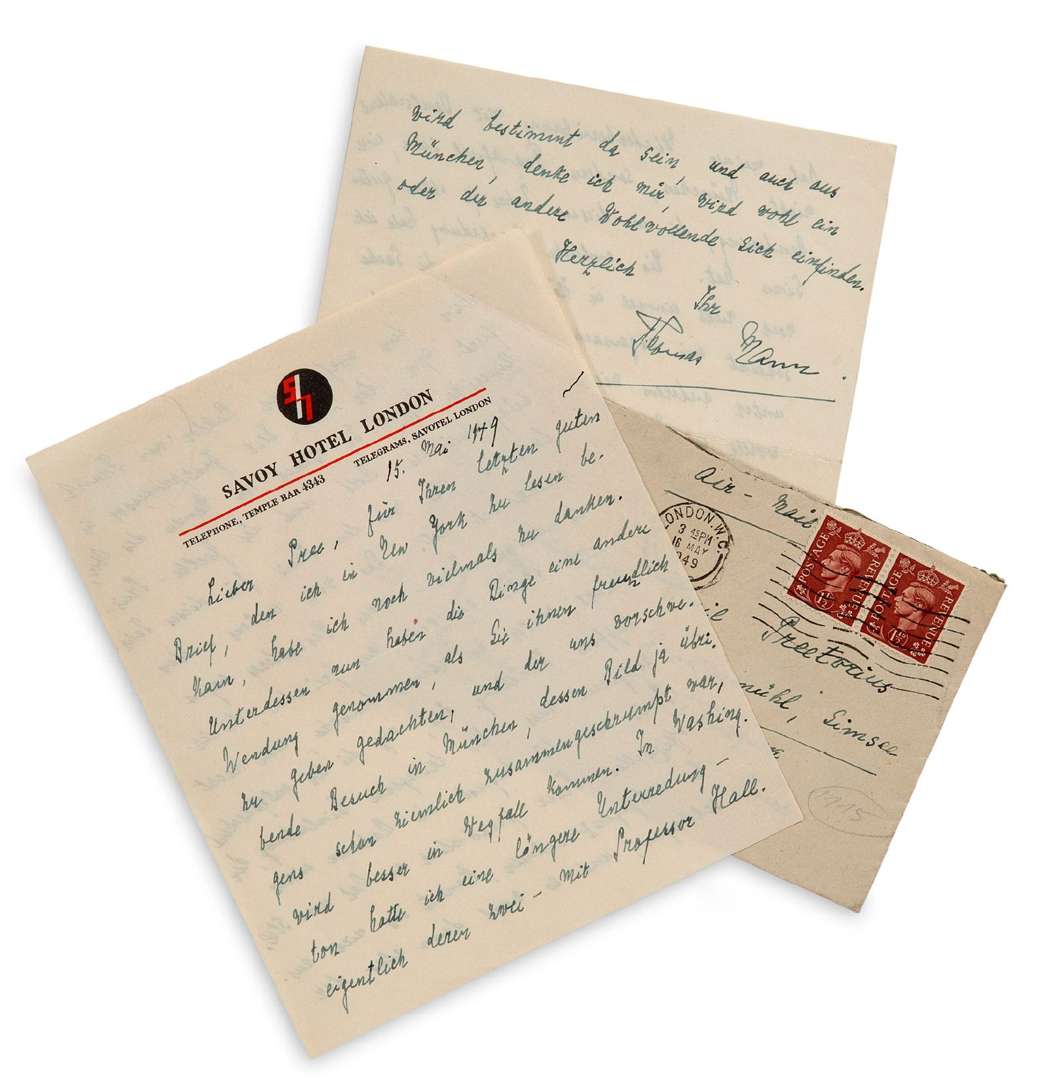 wird bestimmt da sein, und auch aus
München, denke ich mir, wird wohl ein
oder der andere Wohlwollende sich einfinden.
Herzlich
Ihr
Thomas Mann.
SAVOY HOTEL LONDON
TELEPHONE, TEMPLE BAR 4343 TELEGRAMS, SAVOTEL LONDON
15. Mai 1949
Lieber Pree, für Ihren letzten guten
Brief, den ich in New York zu lesen be-
kam, habe ich noch vielmals zu danken.
Unterdessen nun haben die Dinge eine andere
Wendung genommen, als Sie ihnen freundlich
zu geben gedachten, und der uns vorschwe-
bende Besuch in München, dessen Bild ja übri-
gens schon ziemlich zusammengeschrumpft war,
wird besser in Wegfall kommen. In Washing-
ton hatte ich eine längere Unterredung –
eigentlich deren zwei – mit Professor Hall.
Air-Mail
LONDON. W.C.
3 45 PM
16 MAY
1949
POSTAGE REVENUE
1½D
POSTAGE REVENUE
1½D
Preetorius
mühl, Simsee